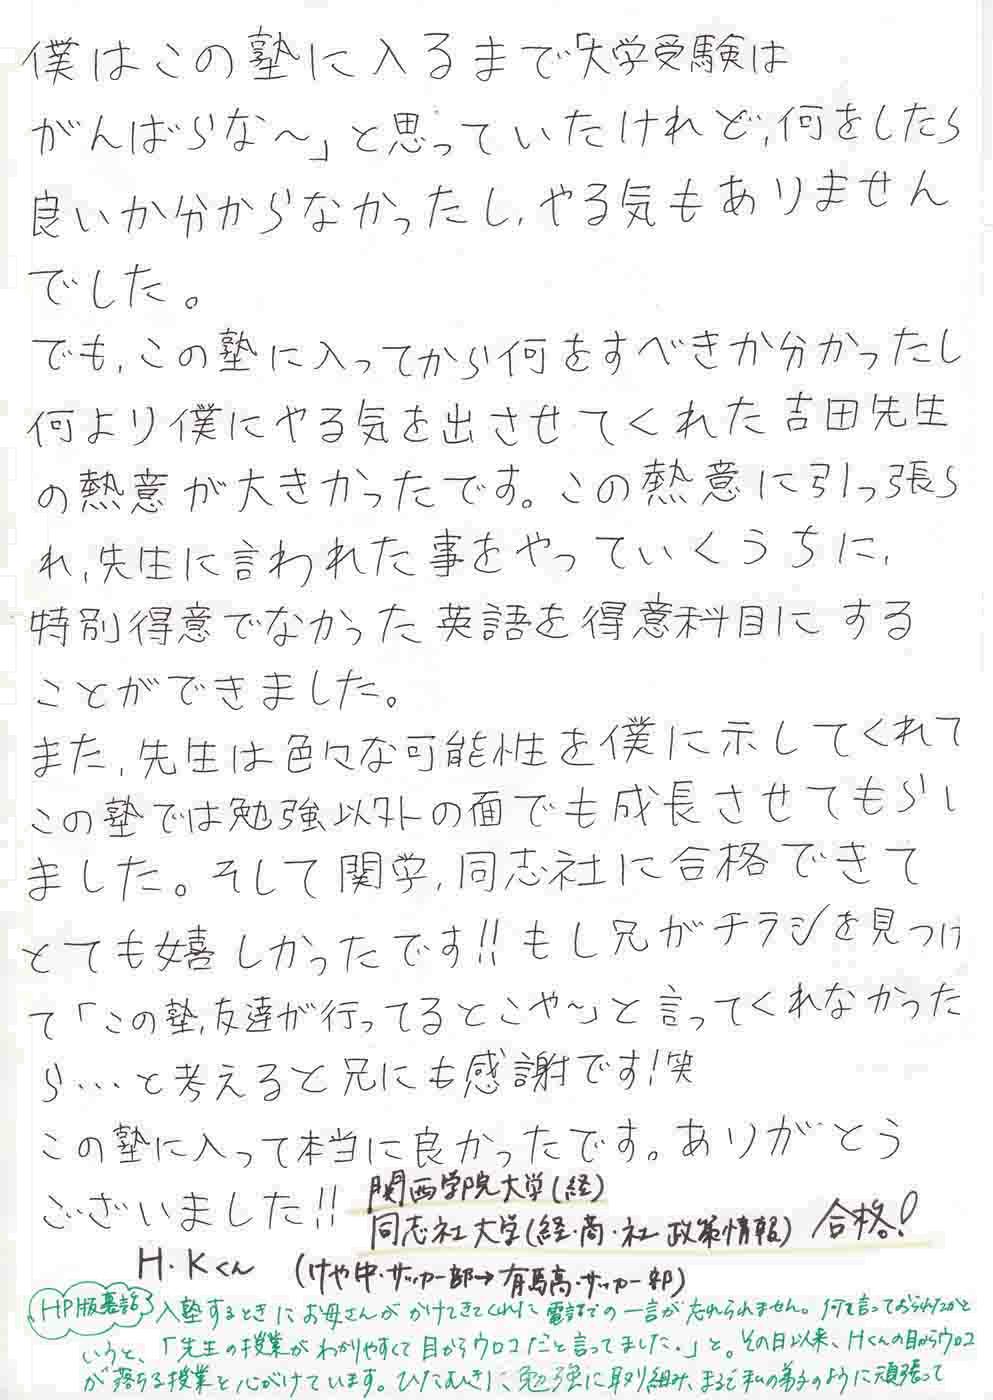 僕はこの塾に入るまで「大学受験は
がんばらな〜」と思っていたけれど,何をしたら
良いか分からなかったし,やる気もありません
でした。
でも,この塾に入ってから何をすべきか分かったし
何より僕にやる気を出させてくれた吉田先生
の熱意が大きかったです。この熱意に引っ張ら
れ,先生に言われた事をやっていくうちに,
特別得意でなかった英語を得意科目にする
ことができました。
また,先生は色々な可能性を僕に示してくれて
この塾では勉強以外の面でも成長させてもらい
ました。そして関学,同志社に合格できて
とても嬉しかったです!!もし兄がチラシを見つけ
て「この塾,友達が行ってるとこや〜」と言ってくれなかった
ら…と考えると兄にも感謝です!笑
この塾に入って本当に良かったです。ありがとう
ございました!!
関西学院大学(経)
同志社大学(経・商・社 政策情報) 合格!
H・Kくん (けや中・サッカー部→有馬高・サッカー部)
HP版裏話 入塾するときにお母さんがかけてきてくれた電話での一言が忘れられません。何を言っておられたかと
いうと、「先生の授業がわかりやすくて目からウロコだと言ってました.」と。その日以来、Hくんの目からウロコ
が落ちる授業を心がけています。ひたむきに勉強に取り組み、まるで私の弟子のように頑張って